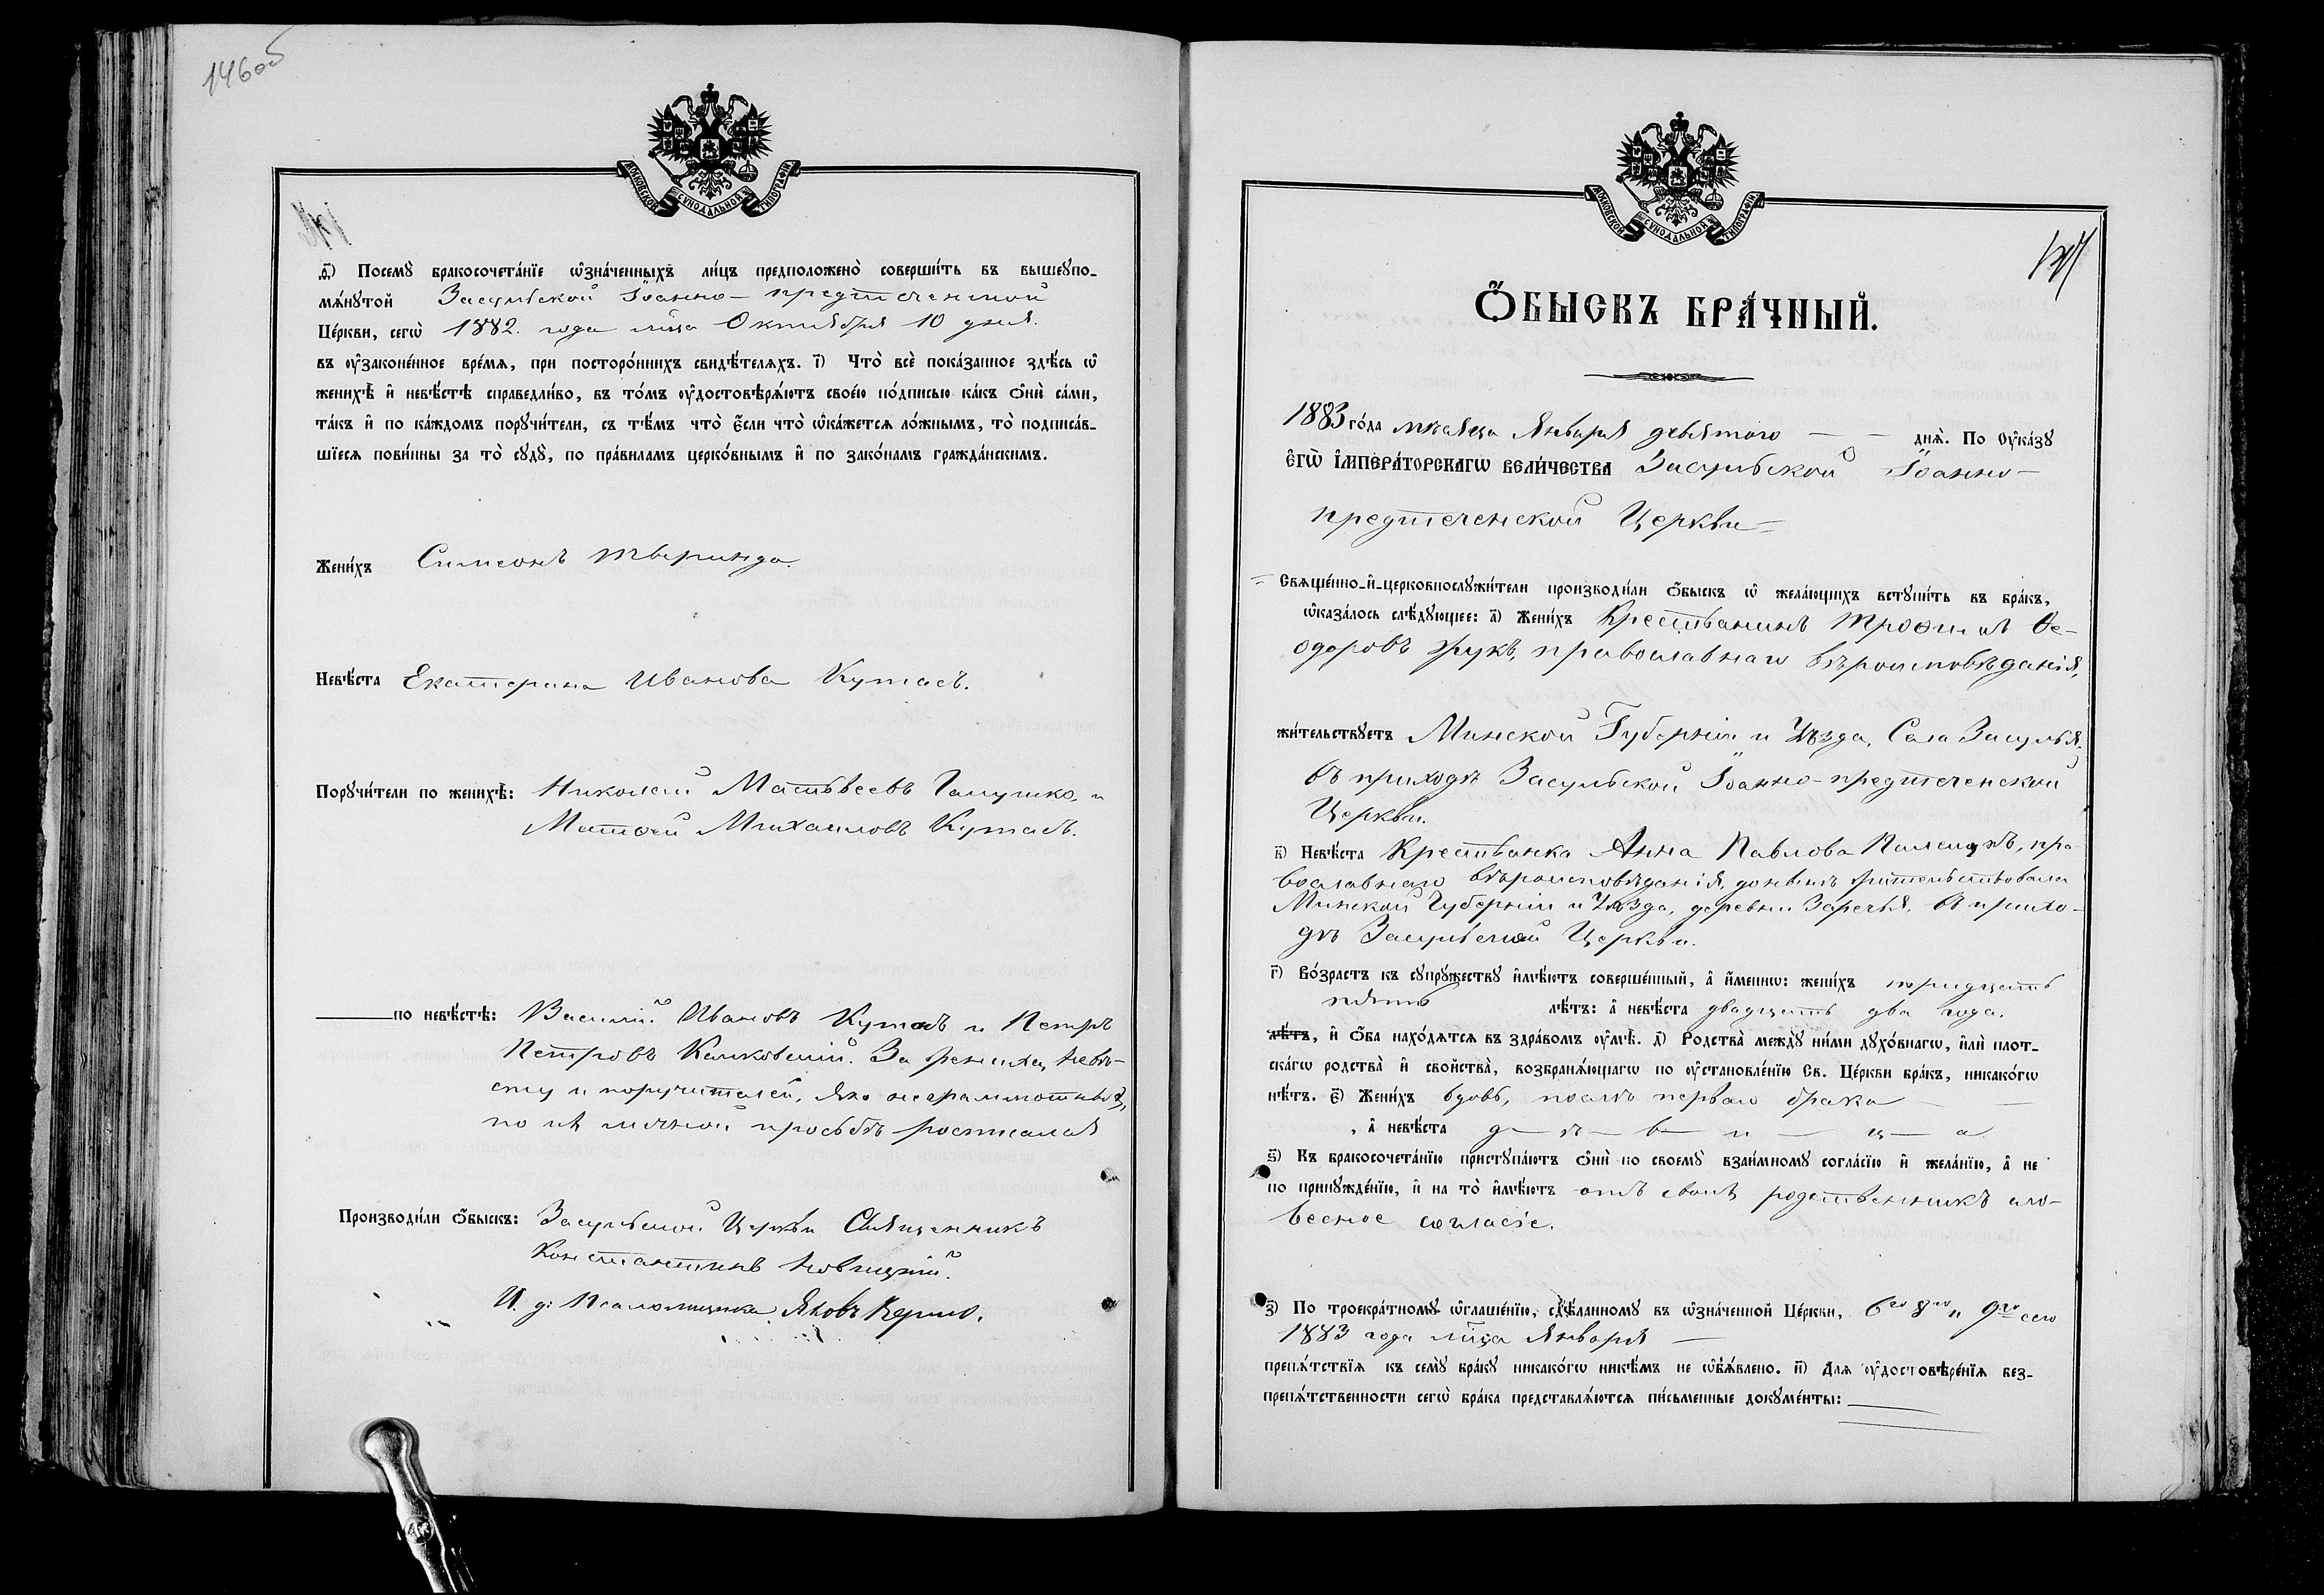 146 об
МОСКОВСКОЙ СѴНОДАЛЬНОЙ ТИПОГРАФІИ
ѳ҃) Посемꙋ̀ бракосочета́нїе ѡ҆зна́ченныхъ ли́цъ предположено̀ соверши́ть въ вышеꙋпо-
мѧ́нꙋтой Засульской Іоанно-предтеченской
Це́ркви, сегѡ̀ 1882. года мца Октября 10 дня.
въ ᲂу҆законе́нное вре́мѧ, при посторо́ннихъ свидѣ́телѧхъ. і҃) Что̀ всѐ пока́занное здѣ́сь ѡ҆
женихѣ̀ и҆ невѣ́стѣ справедли́во, въ то́мъ ᲂу҆достовѣрѧ́ютъ своею́ по́дписью ка́къ ѻ҆нѝ са́ми,
та́къ и҆ по ка́ждомъ порꙋчи́тели, съ тѣ́мъ что̀ є҆́сли что̀ ѡ҆ка́жетсѧ ло́жнымъ, то̀ подписа́в-
шїесѧ пови́нны за то̀ сꙋдꙋ̀, по пра́виламъ церко́внымъ и҆ по зако́намъ гражда́нскимъ.
Жени́хъ Симеонъ Тваринда.
Невѣ́ста Екатерина Иванова Кутасъ.
Порꙋчи́тели по женихѣ̀: Николай Матвѣевъ и
Матѳей Михаиловъ Кутасъ.
по невѣ́стѣ: Василій Ивановъ Кутасъ и Петръ
Петровъ За жениха, невѣ-
сту и поручителей, яко неграмотныхъ,
по ихъ личной просьбѣ росписался
Производи́ли ѻ҆́быскъ: Засульской Церкви Священникъ
Константинъ Новицкій.
И. д. Псаломщика Яковъ
МОСКОВСКОЙ СѴНОДАЛЬНОЙ ТИПОГРАФІИ
147
Ѻ҆́БЫСКЪ БРА́ЧНЫЙ.
1883 го́да мѣсяца Января девятого — — днѧ̀. По ᲂу҆ка́зꙋ
Є҆ГѠ̀ И҆МПЕРА́ТОРСКАГѠ ВЕЛИ́ЧЕСТВА Засульской Іоанно-
предтеченской Церкви —
Свѧще́нно-и҆-церковнослꙋжи́тели производи́ли ѻ҆́быскъ ѡ҆ жела́ющихъ встꙋпи́ть въ бра́къ,
ѡ҆каза́лось слѣ́дꙋющее: а҃) Жени́хъ Крестьянинъ Трофимъ Ѳе-
одоровъ Жукъ, православнаго вѣроисповѣданія,
жи́тельствꙋетъ Минской Губерніи и Уѣзда, Села Засулья.
въ приходѣ Засульской Іоанно-предтеченской
Церкви.
в҃) Невѣ́ста Крестьянка Анна Павлова пра-
вославнаго вѣроисповѣданія, донынѣ жительствовала
Минской Губерніи и Уѣзда, деревни Заречья, въ прихо-
дѣ Засульской Церкви.
г҃) Во́зрастъ къ сꙋпрꙋ́жествꙋ и҆мѣ́ютъ соверше́нный, а҆ и҆́меннѡ: жени́хъ тридцать
пять лѣ́тъ: а҆ невѣ́ста двадцать два года.
лѣ́тъ, и҆ ѻ҆́ба нахо́дѧтсѧ въ здра́вомъ ᲂу҆мѣ̀. д҃) Родства̀ междꙋ̀ ни́ми дꙋхо́внагѡ, и҆лѝ плот-
ска́гѡ родства̀ и҆ сво́йства, возбранѧ́ющагѡ по ᲂу҆становле́нїю Св. Це́ркви бра́къ, никако́гѡ
нѣ́тъ. є҃) Жени́хъ вдовъ, послѣ перваго брака —
, а҆ невѣ́ста д — ѣ — в — и — ц — а
ѕ҃) Къ бракосочета́нїю пристꙋпа́ютъ ѻ҆нѝ по своемꙋ̀ взаи́мномꙋ согла́сїю и҆ жела́нїю, а҆ не
по принꙋжде́нїю, и҆ на то̀ и҆мѣ́ютъ отъ своихъ родственникъ сло-
весное согласіе.
з҃) По троекра́тномꙋ ѡ҆глаше́нїю, сдѣ́ланномꙋ въ ѡ҆зна́ченной Це́ркви, 6го 8го и 9го сего
1883 года мца Января —
препѧ́тствїѧ къ семꙋ̀ бра́кꙋ никако́гѡ никѣ́мъ не ѡ҆б̾ѧ́влено. и҃) Для ᲂу҆достовѣре́нїѧ без-
препѧ́тственности сегѡ̀ бра́ка представлѧ́ютсѧ пи́сьменные докꙋме́нты: